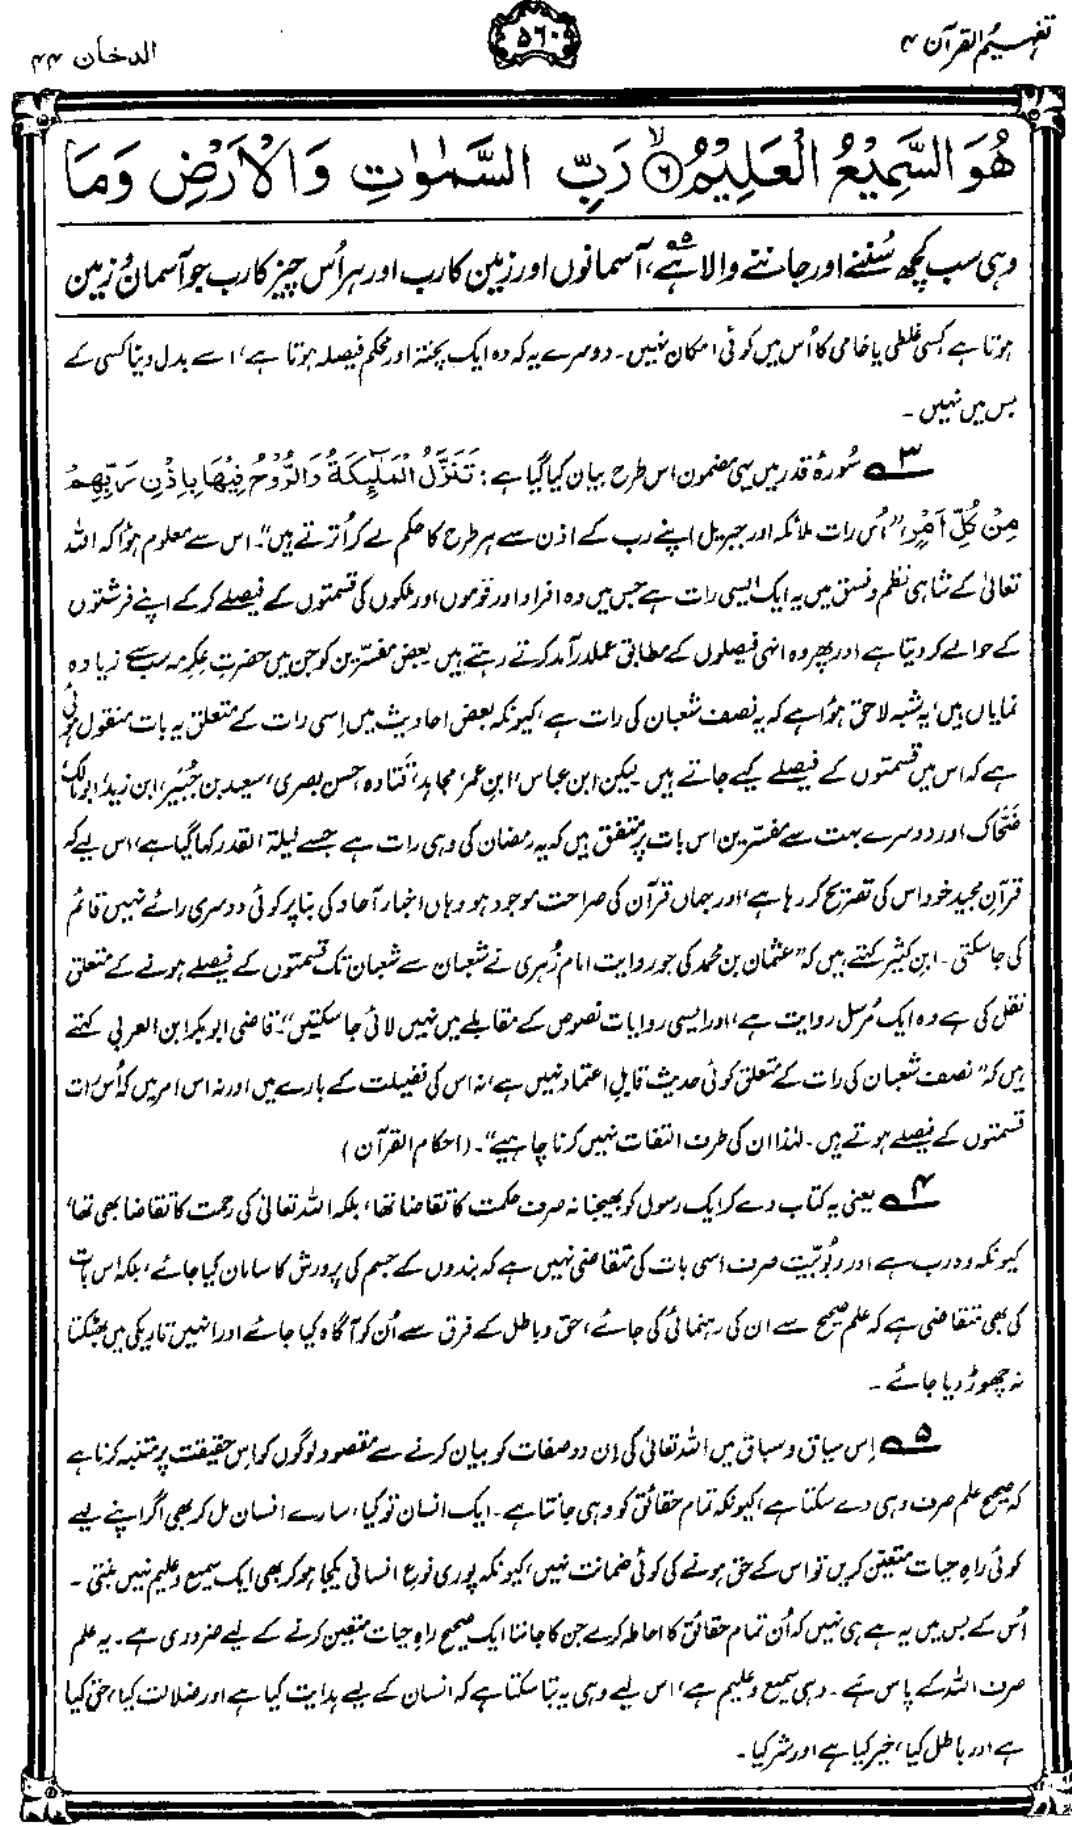 تفہیم القرآن ۴
۵۶۰
الدخان ۴۴
هُوَ السَّمِيْعُ الْعَلِيْمُ ۙ﴿۶﴾ رَبِّ السَّمٰوٰتِ وَالْاَرْضِ وَمَا
وہی سب کچھ سُننے اور جاننے والا ہے،۵ آسمانوں اور زمین کا رب اور ہر اُس چیز کا رب جو آسمان و زمین
ہوتا ہے کسی غلطی یا خامی کا اُس میں کوئی امکان نہیں۔ دوسرے یہ کہ وہ ایک پختہ اور محکم فیصلہ ہوتا ہے، اسے بدل دینا کسی کے
بس میں نہیں۔
۳ سُورۂ قدر میں یہی مضمون اس طرح بیان کیا گیا ہے: تَنَزَّلُ الْمَلٰٓئِكَةُ وَالرُّوْحُ فِيْهَا بِاِذْنِ رَبِّهِمْ
مِنْ كُلِّ اَمْرٍ، "اُس رات ملائکہ اور جبریل اپنے رب کے اذن سے ہر طرح کا حکم لے کر اُترتے ہیں"۔ اس سے معلوم ہوا کہ اللہ
تعالیٰ کے شاہی نظم و نسق میں یہ ایک ایسی رات ہے جس میں وہ افراد اور قوموں اور ملکوں کی قسمتوں کے فیصلے کر کے اپنے فرشتوں
کے حوالے کر دیتا ہے اور پھر وہ انہی فیصلوں کے مطابق عملدرآمد کرتے رہتے ہیں بعض مفسّرین کو جن میں حضرت عِکرِمہ سب سے زیادہ
نمایاں ہیں، یہ شبہ لاحق ہُوا ہے کہ یہ نصف شعبان کی رات ہے، کیونکہ بعض احادیث میں اِسی رات کے متعلق یہ بات منقول ہوئی
ہے کہ اس میں قسمتوں کے فیصلے کیے جاتے ہیں۔ لیکن ابن عباس، ابنِ عمر، مجاہد، قَتادہ، حسن بصری، سعید بن جُبَیر، ابن زید، ابو مالک،
ضَحّاک اور دوسرے بہت سے مفسّرین اس بات پر متفق ہیں کہ یہ رمضان کی وہی رات ہے جسے لیلۃ القدر کہا گیا ہے، اس لیے کہ
قرآن مجید خود اس کی تصریح کر رہا ہے، اور جہاں قرآن کی صراحت موجود ہو وہاں اخبار آحاد کی بنا پر کوئی دوسری رائے نہیں قائم
کی جاسکتی۔ ابن کثیر کہتے ہیں کہ "عثمان بن محمد کی جو روایت امام زُہری نے شعبان سے شعبان تک قسمتوں کے فیصلے ہونے کے متعلق
نقل کی ہے وہ ایک مُرسل روایت ہے، اور ایسی روایات نصوص کے مقابلے میں نہیں لائی جا سکتیں"۔ قاضی ابوبکر ابن العربی کہتے
ہیں کہ "نصف شعبان کی رات کے متعلق کوئی حدیث قابلِ اعتماد نہیں ہے، نہ اس کی فضیلت کے بارے میں اور نہ اس امر میں کہ اُس رات
قسمتوں کے فیصلے ہوتے ہیں۔ لہٰذا ان کی طرف التفات نہیں کرنا چاہیے"۔ (احکام القرآن)
۴ یعنی یہ کتاب دے کر ایک رسول کو بھیجنا نہ صرف حکمت کا تقاضا تھا، بلکہ اللہ تعالیٰ کی رحمت کا تقاضا بھی تھا،
کیونکہ وہ رب ہے اور ربُوبیّت صرف اسی بات کی متقاضی نہیں ہے کہ بندوں کے جسم کی پرورش کا سامان کیا جائے، بلکہ اس بات
کی بھی متقاضی ہے کہ علم صحیح سے ان کی رہنمائی کی جائے، حق و باطل کے فرق سے اُن کو آگاہ کیا جائے اور انہیں تاریکی میں بھٹکتا
نہ چھوڑ دیا جائے۔
۵ اِس سیاق و سباق میں اللہ تعالیٰ کی اِن دو صفات کو بیان کرنے سے مقصود لوگوں کو اِس حقیقت پر متنبہ کرنا ہے
کہ صحیح علم صرف وہی دے سکتا ہے، کیونکہ تمام حقائق کو وہی جانتا ہے۔ ایک انسان تو کیا، سارے انسان مل کر بھی اگر اپنے لیے
کوئی راہِ حیات متعیّن کریں تو اس کے حق ہونے کی کوئی ضمانت نہیں، کیونکہ پوری نوعِ انسانی یکجا ہو کر بھی ایک سمیع و علیم نہیں بنتی۔
اُس کے بس میں یہ ہے ہی نہیں کہ اُن تمام حقائق کا احاطہ کرے جن کا جاننا ایک صحیح راہِ حیات متعین کرنے کے لیے ضروری ہے۔ یہ علم
صرف اللہ کے پاس ہے۔ وہی سمیع و علیم ہے، اس لیے وہی یہ بتا سکتا ہے کہ انسان کے لیے ہدایت کیا ہے اور ضلالت کیا، حق کیا
ہے اور باطل کیا، خیر کیا ہے اور شر کیا۔